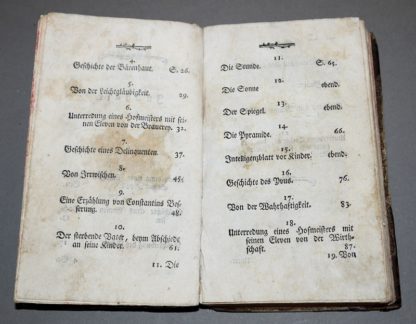 4.
Geschichte der Bärenhaut. S. 26.
5.
Von der Leichtgläubigkeit. 29.
6.
Unterredung eines Hofmeisters mit sei-
nen Eleven von der Brauerey. 32.
7.
Geschichte eines Delinquenten. 37.
8.
Von Irrwischen. 45.
9.
Eine Erzählung von Constantins Bes-
serung. 48.
10.
Der sterbende Vater, beym Abschiede
an seine Kinder. 61.
11. Die
11.
Die Stunde. S. 65.
12.
Die Sonne ebend.
13.
Der Spiegel. ebend.
14.
Die Pyramide. 66.
15.
Intelligenzblatt vor Kinder. ebend.
16.
Geschichte des Pous. 76.
17.
Von der Wahrhaftigkeit. 83.
18.
Unterredung eines Hofmeisters mit
seinen Eleven von der Wirth-
schaft. 87.
19. Von